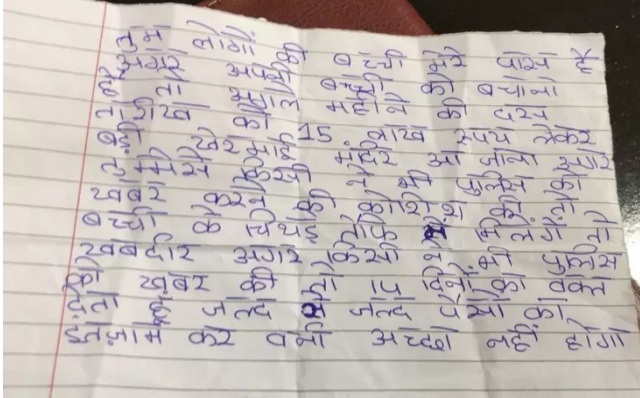 तुम लोगों की बच्ची मेरे पास है
अगर अपनी बच्ची को बचाना
है तो अगले महीने की दस
तारीख को 15 लाख रुपये लेकर
बड़ी खेरमाई मंदिर आ जाना अगर
तुममेसे किसी ने भी पुलिस को
खबर करने की कोशिश की तो
बच्ची के चिथड़े तोफे मे मिलेंगे तो
खबरदार अगर किसी ने भी पुलिस
को खबर की तो 10 दिनो का वक्त
देता हूं जल्द से जल्द पैसो का
इंतजाम कर वर्ना अच्छा नही होगा